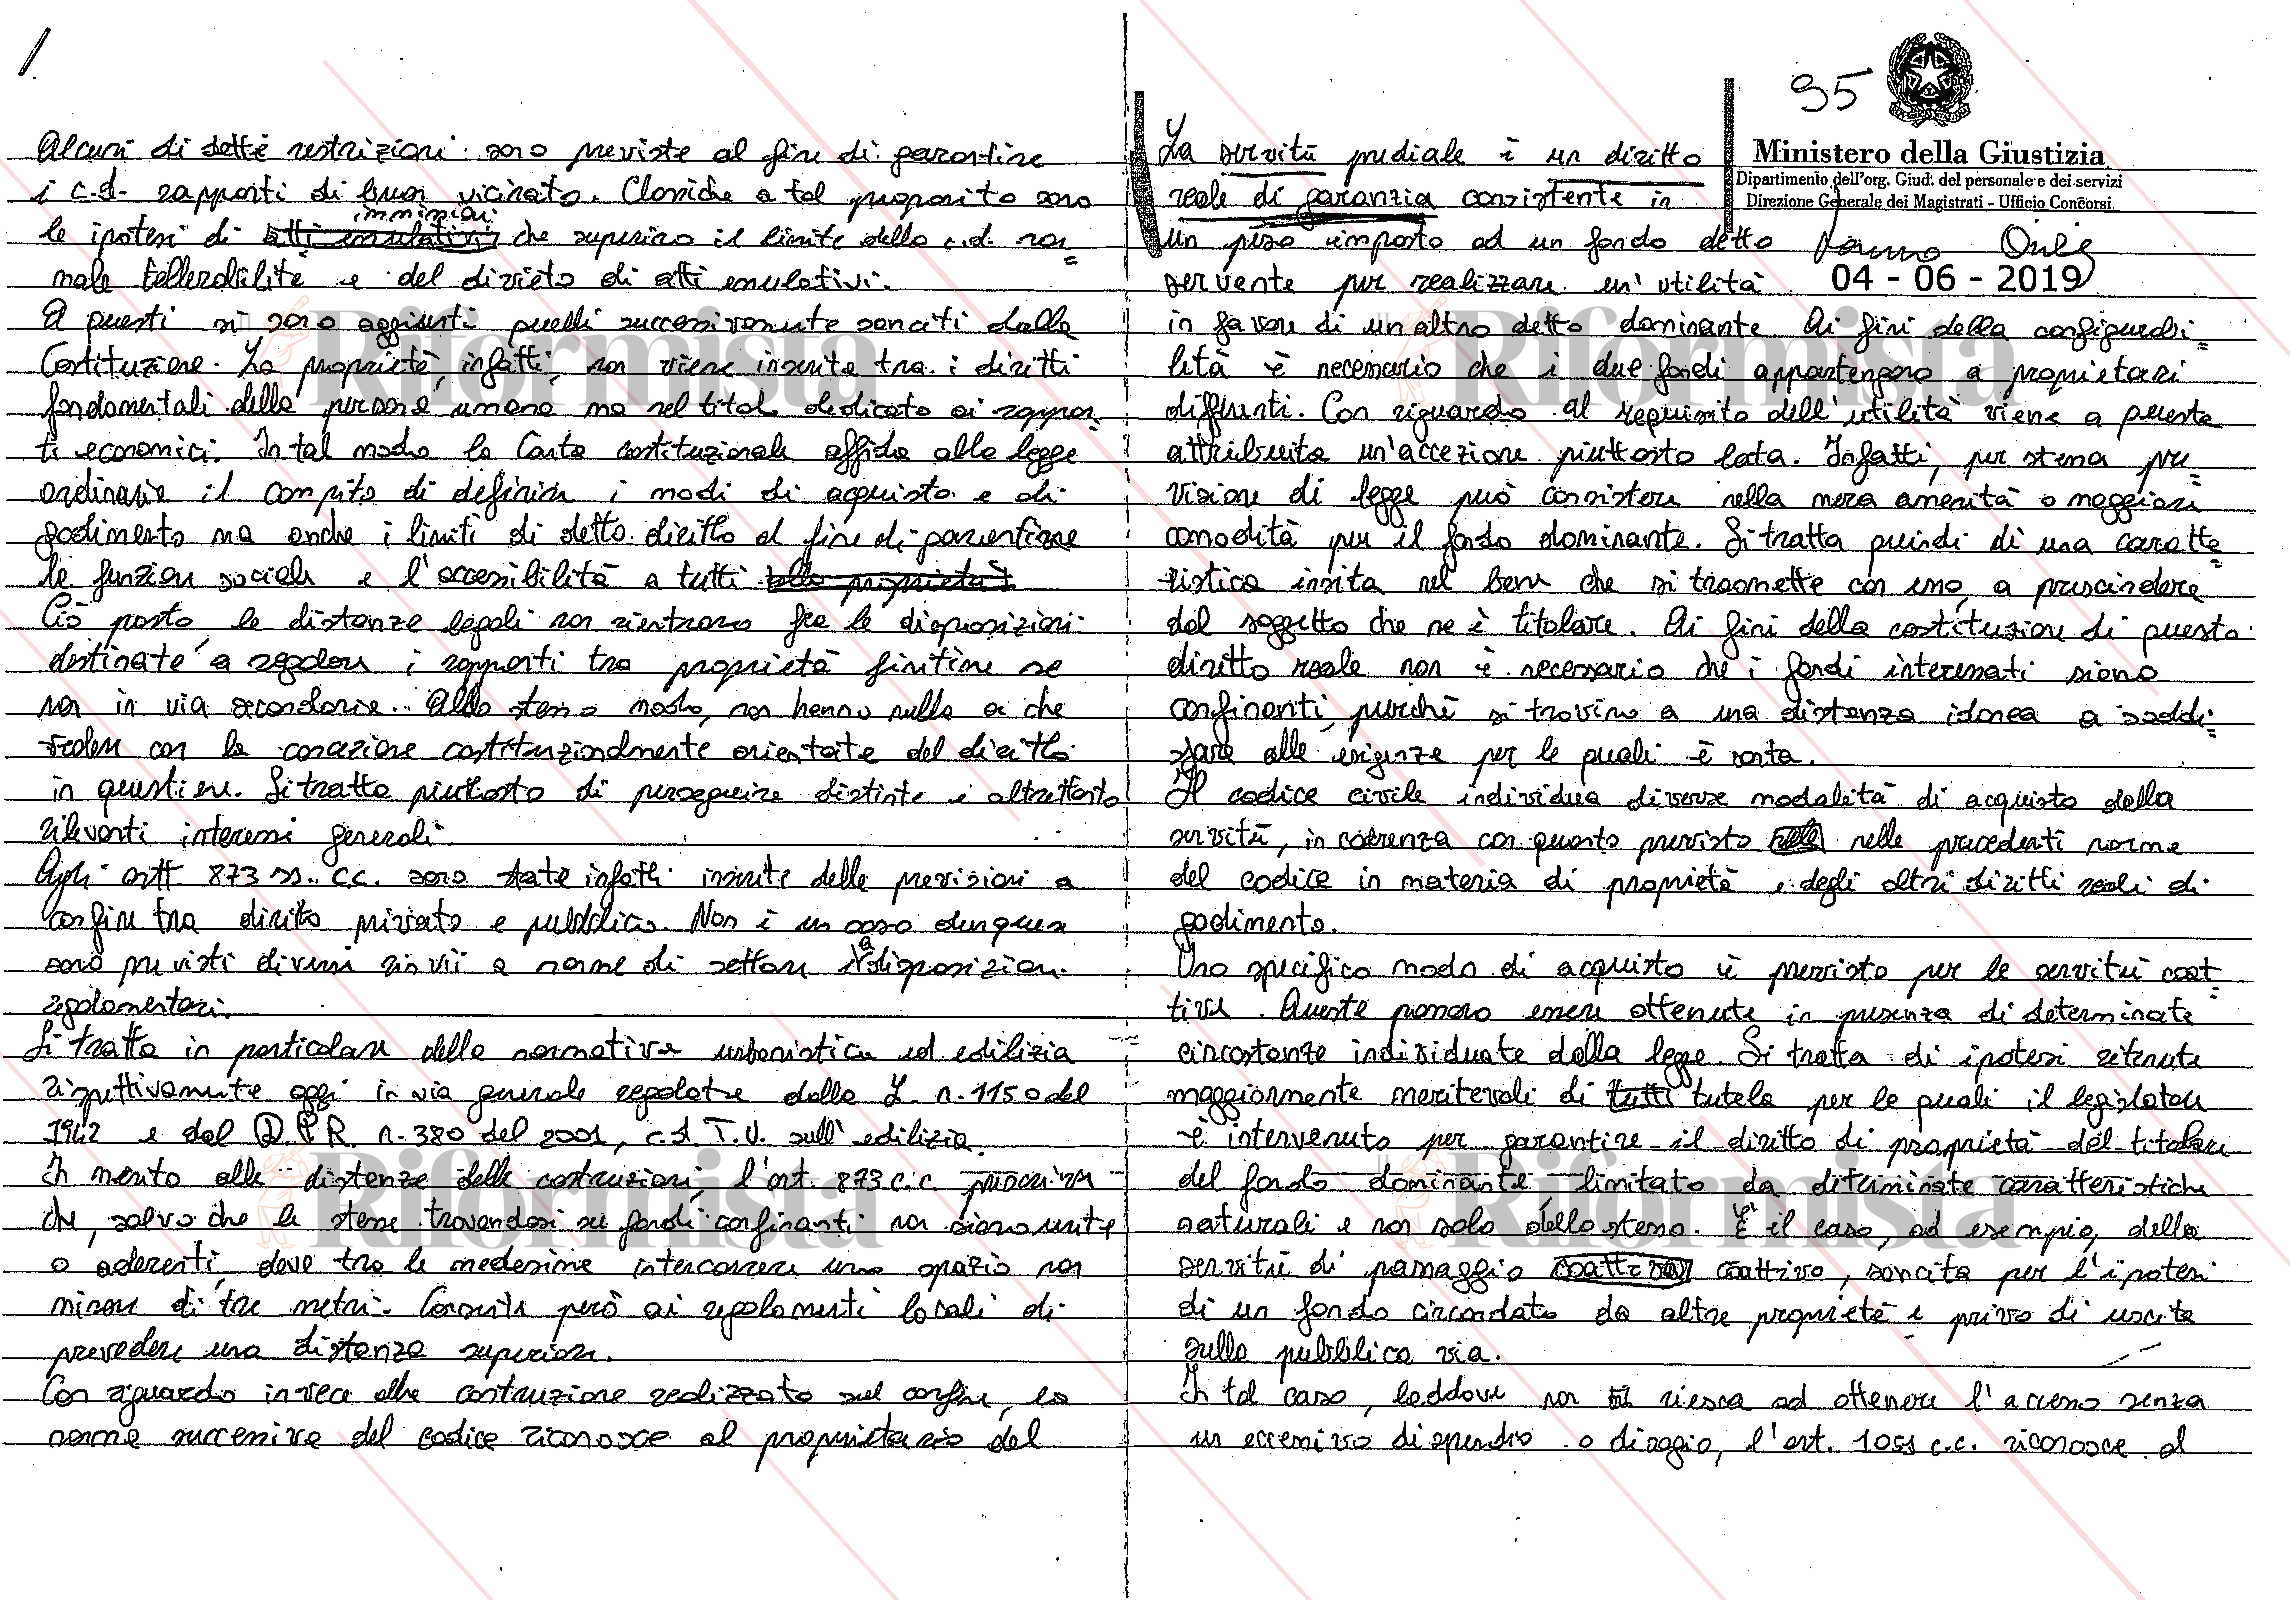 Alcuni di dette restrizioni sono previste al fine di garantire
i c.d. rapporti di buon vicinato. Classiche a tal proposito sono
immissioni
le ipotesi di atti emulativi che superino il limite della c.d. nor=
male tollerabilità e del divieto di atti emulativi.
A questi si sono aggiunti quelli successivamente sanciti dalla
Costituzione. La proprietà, infatti, non viene inserita tra i diritti
fondamentali della persona umana ma nel titolo dedicato ai rappor=
ti economici. In tal modo la Carta costituzionale affida alla legge
ordinaria il compito di definire i modi di acquisto e di
godimento ma anche i limiti di detto diritto al fine di garantirne
la funzione sociale e l'accessibilità a tutti della proprietà.
Ciò posto, le distanze legali non rientrano fra le disposizioni
destinate a regolare i rapporti tra proprietà finitime se
non in via secondaria. Allo stesso modo, non hanno nulla a che
vedere con la concezione costituzionalmente orientata del diritto
in questione. Si tratta piuttosto di perseguire distinti e altrettanto
rilevanti interessi generali.
Agli artt. 873 ss. c.c. sono state infatti inserite delle previsioni a
confine tra diritto privato e pubblico. Non è un caso dunque
sono previsti diversi rinvii a norme di settore e a disposizioni
regolamentari.
Si tratta in particolare della normativa urbanistica ed edilizia
rispettivamente oggi in via generale regolate dalla L. n. 1150 del
1942 e dal D.P.R. n. 380 del 2001, c.d. T.U. sull'edilizia.
In merito alle distanze delle costruzioni, l'art. 873 c.c. prescrive
che, salvo che le stesse trovandosi su fondi confinanti non siano unite
o aderenti, deve tra le medesime intercorrere uno spazio non
minore di tre metri. Consente però ai regolamenti locali di
prevedere una distanza superiore.
Con riguardo invece alla costruzione realizzata sul confine, la
norma successiva del codice riconosce al proprietario del
95
Ministero della Giustizia
Dipartimento dell'org. Giud. del personale e dei servizi
Direzione Generale dei Magistrati - Ufficio Concorsi
04 - 06 - 2019
La servitù prediale è un diritto
reale di garanzia consistente in
un peso imposto ad un fondo detto
servente per realizzare un'utilità
in favore di un altro detto dominante. Ai fini della configurabi=
lità è necessario che i due fondi appartengano a proprietari
differenti. Con riguardo al requisito dell'utilità viene a questa
attribuita un'accezione piuttosto lata. Infatti, per stessa pre=
visione di legge può consistere nella mera amenità o maggiore
comodità per il fondo dominante. Si tratta quindi di una caratte=
ristica insita nel bene che si trasmette con esso, a prescindere
dal soggetto che ne è titolare. Ai fini della costituzione di questo
diritto reale non è necessario che i fondi interessati siano
confinanti, purchè si trovino a una distanza idonea a soddi=
sfare alle esigenze per le quali è sorta.
Il codice civile individua diverse modalità di acquisto della
servitù, in coerenza con quanto previsto nelle precedenti norme
del codice in materia di proprietà e degli altri diritti reali di
godimento.
Uno specifico modo di acquisto è previsto per le servitù coat=
tive. Queste possono essere ottenute in presenza di determinate
circostanze individuate dalla legge. Si tratta di ipotesi ritenute
maggiormente meritevoli di tutti tutela per le quali il legislatore
è intervenuto per garantire il diritto di proprietà del titolare
del fondo dominante, limitato da determinate caratteristiche
naturali e non solo dello stesso. È il caso, ad esempio, della
servitù di passaggio coattivo coattivo, sancita per l'ipotesi
di un fondo circondato da altre proprietà e privo di uscita
sulla pubblica via.
In tal caso, laddove non riesca ad ottenere l'accesso senza
un eccessivo dispendio o disagio, l'art. 1051 c.c. riconosce al
Riformista
Riformista
Riformista
Riformista